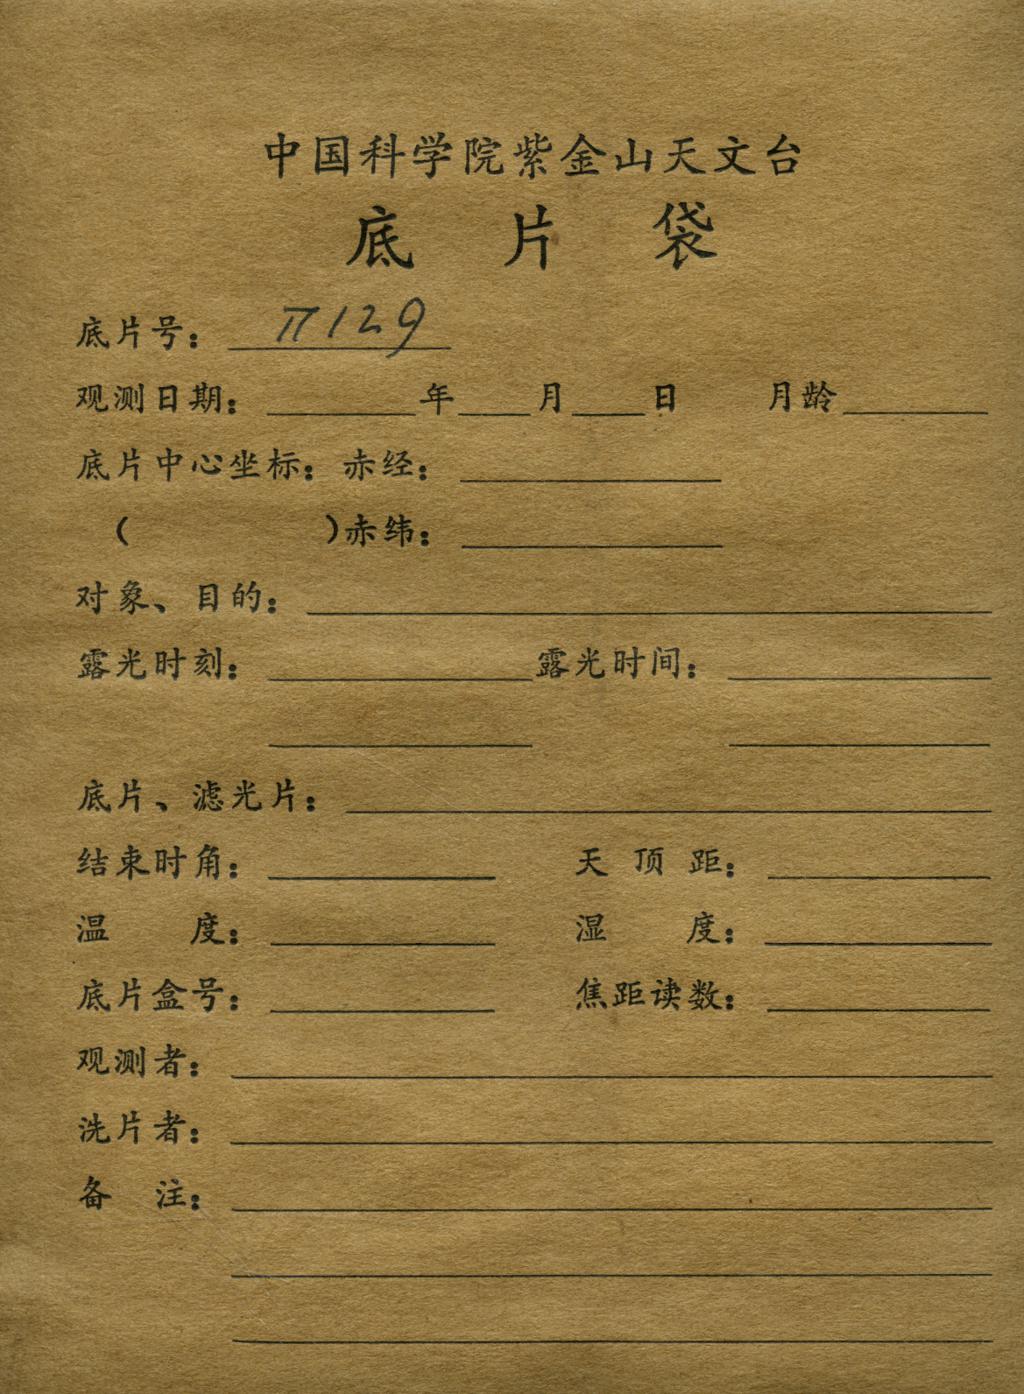 中国科学院紫金山天文台
底片袋
底片号：π129
观测日期：年月日 月龄
底片中心坐标：赤经：
（ ）赤纬：
对象、目的：
露光时刻： 露光时间：
底片、滤光片：
结束时角： 天顶距：
温度： 湿度：
底片盒号： 焦距读数：
观测者：
洗片者：
备注：